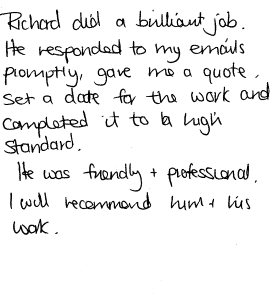 Richard did a brilliant job.
He responded to my emails
promptly, gave me a quote,
set a date for the work and
completed it to a high
standard.
He was friendly + professional.
I will recommend him + his
work.